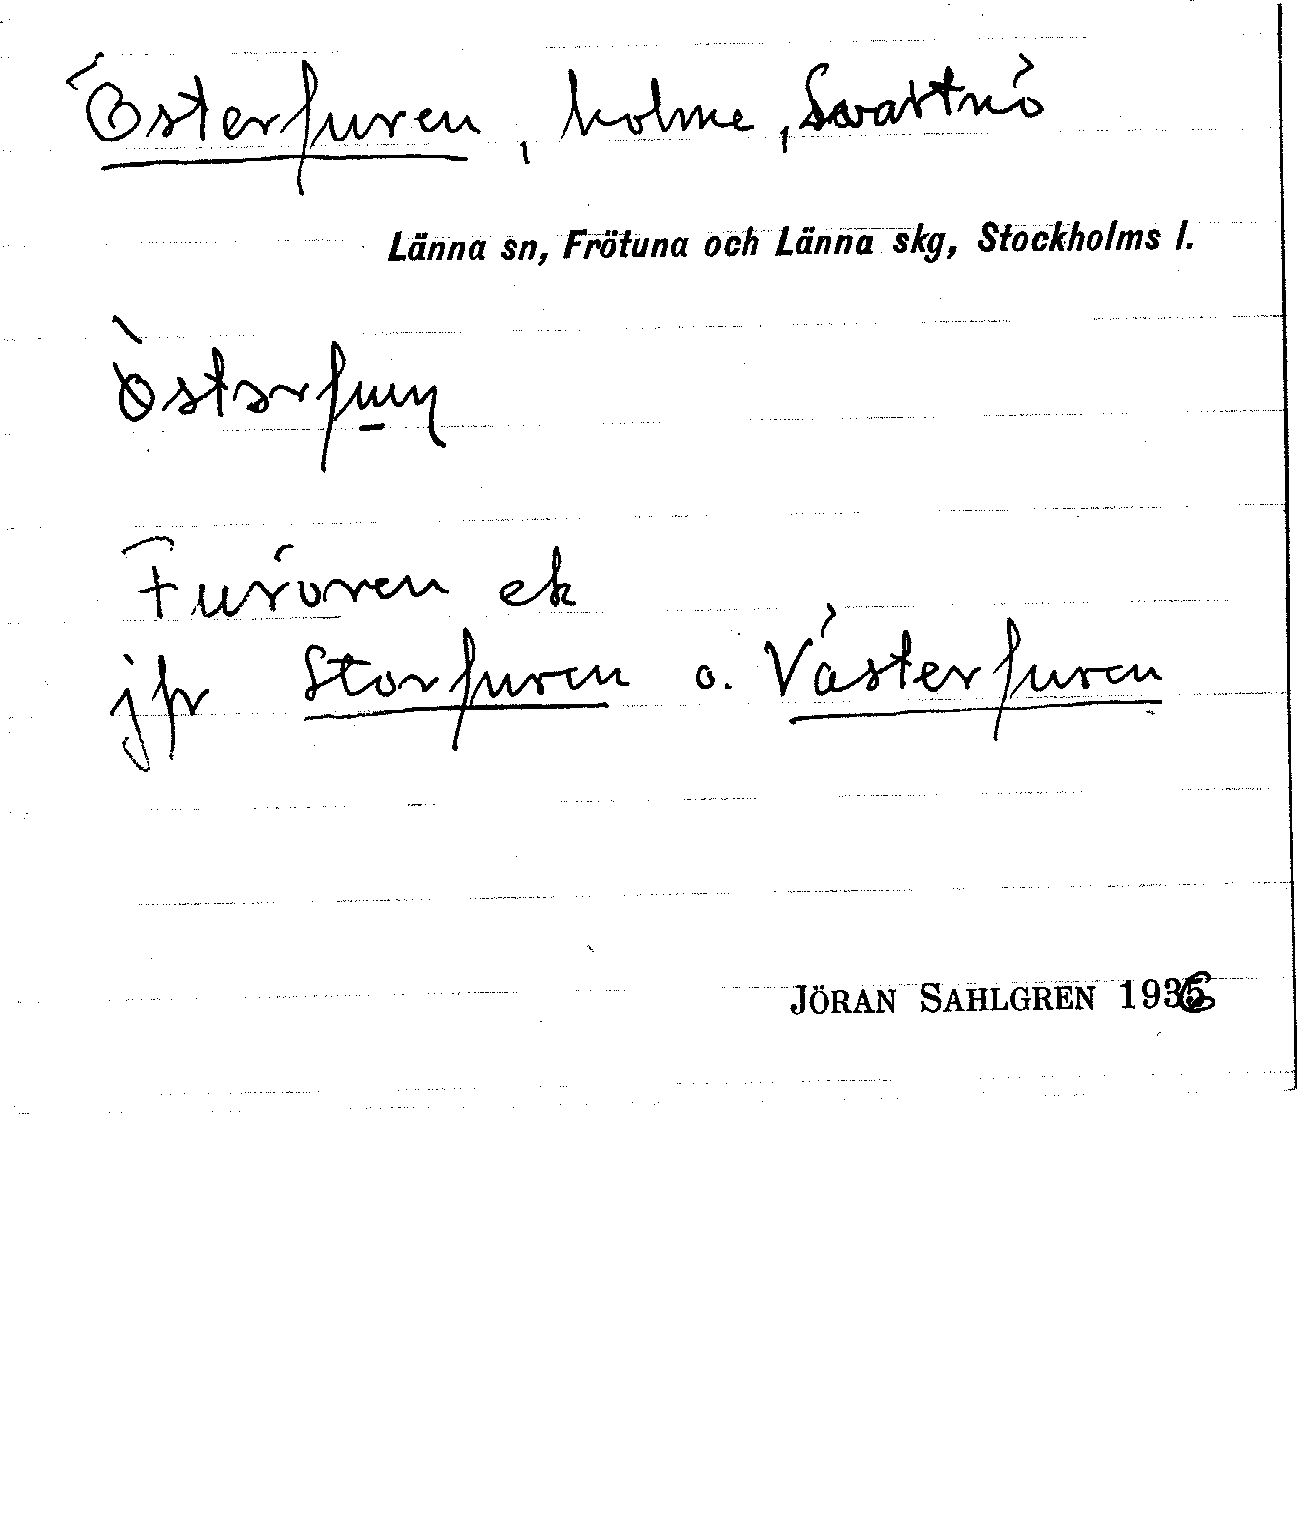 Österfuren, holme, Svartnö
Länna sn, Frötuna och Länna skg, Stockholms l.
Furören ek
jfr Storfuren o. Västerfuren
JÖRAN SAHLGREN 1936